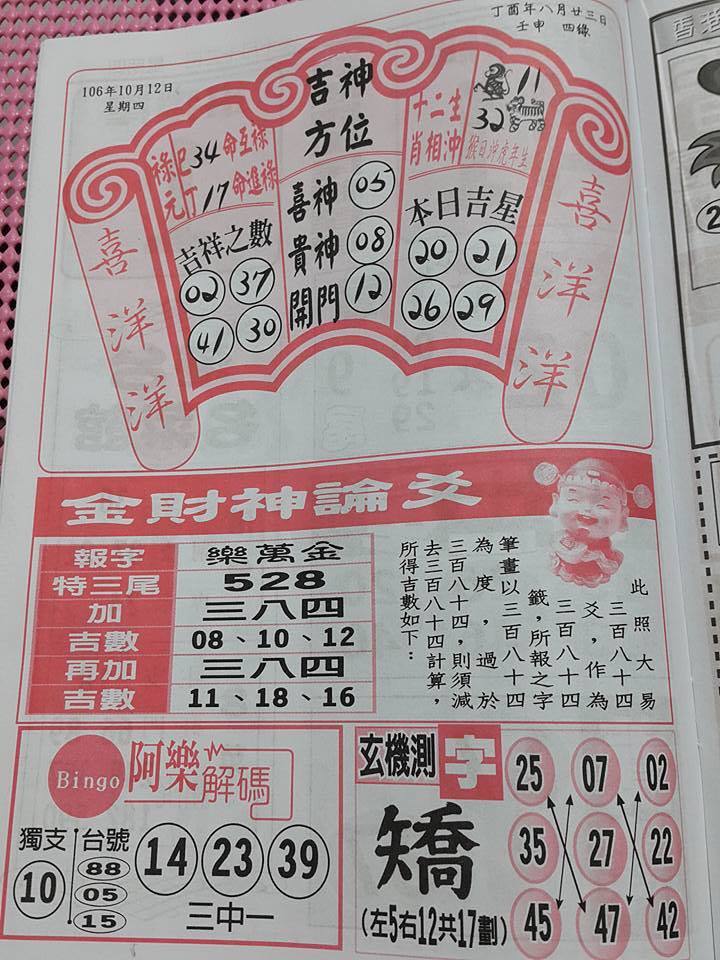 丁酉年八月廿三日
壬申 四綠
106年10月12日
星期四
喜洋洋
祿巳34命互祿
元丁17命進祿
吉祥之數
02 37
41 30
吉神
方位
喜神 05
貴神 08
開門 12
十二生
肖相沖
11
32
猴日沖虎年生
本日吉星
20 21
26 29
喜洋洋
金財神論爻
報字 樂萬金
特三尾 528
加 三八四
吉數 08、10、12
再加 三八四
吉數 11、18、16
此照大易
三百八十四
爻，作為
三百八十四
籤，所報之字
筆畫以三百八十四
為度，過於
三百八十四，則須減
去三百八十四計算，
所得吉數如下：
Bingo
阿樂解碼
獨支
10
台號
88
05
15
14 23 39
三中一
玄機測字
矯
(左5右12共17劃)
25 07 02
35 27 22
45 47 42
香港
2